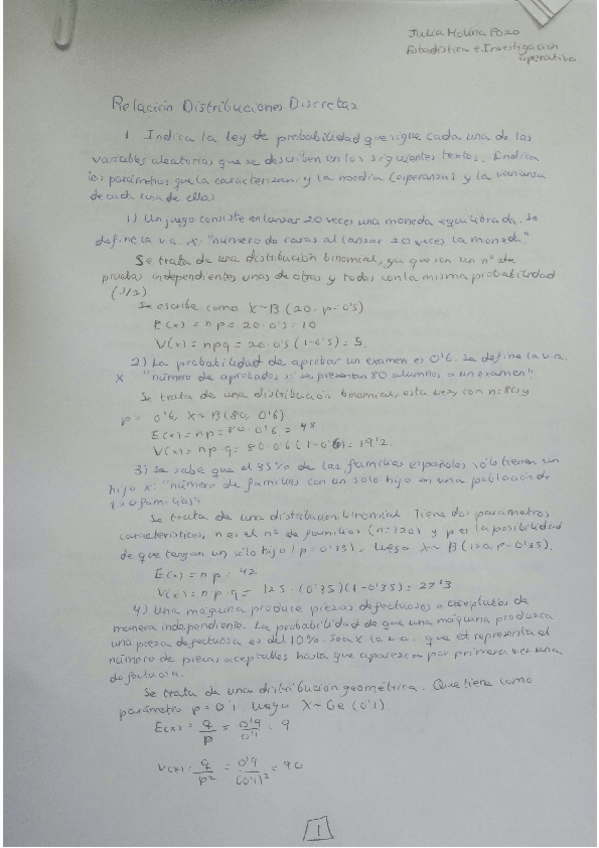 Julia Molina Pozo
Estadística e Investigación
operativa
Relación Distribuciones Discretas
1. Indica la ley de probabilidad que sigue cada una de las
variables aleatorias que se describen en los siguientes textos. Indica
los parámetros que la caracterizan y la media (esperanza) y la varianza
de cada una de ellas
1) Un juego consiste en lanzar 20 veces una moneda equilibrada. Se
define la v.a. x: "número de caras al lanzar 20 veces la moneda."
Se trata de una distribución binomial, ya que son un nº de
pruebas independientes unas de otras y todas con la misma probabilidad
(1/2)
Se escribe como X~B(20, p=0'5)
E(x) = np = 20·0'5 = 10
V(x) = npq = 20·0'5(1-0'5) = 5.
2) La probabilidad de aprobar un examen es 0'6. Se define la v.a.
x "número de aprobados si se presentan 80 alumnos a un examen"
Se trata de una distribución binomial, esta vez, con n=80 y
p = 0'6, X~B(80, 0'6)
E(x) = np = 80·0'6 = 48
V(x) = np·q = 80·0'6(1-0'6) = 19'2.
3) Se sabe que el 35% de las familias españolas sólo tienen un
hijo x: "número de familias con un solo hijo en una población de
120 familias"
Se trata de una distribución binomial. Tiene dos parámetros
característicos, n es el nº de familias (n=120) y p es la posibilidad
de que tengan un sólo hijo (p=0'35), luego X~B(120, p=0'35).
E(x) = np = 42
V(x) = np·q = 125·(0'35)(1-0'35) = 27'3
4) Una máquina produce piezas defectuosas o aceptables de
manera independiente. La probabilidad de que una máquina produzca
una pieza defectuosa es del 10%. Sea X la v.a. que representa el
número de piezas aceptables hasta que aparezca por primera vez una
defectuosa.
Se trata de una distribución geométrica. Que tiene como
parámetro p=0'1. Luego X~Ge(0'1).
E(x) = q/p = 0'9/0'1 = 9
V(x) = q/p² = 0'9/(0'1)² = 90
1